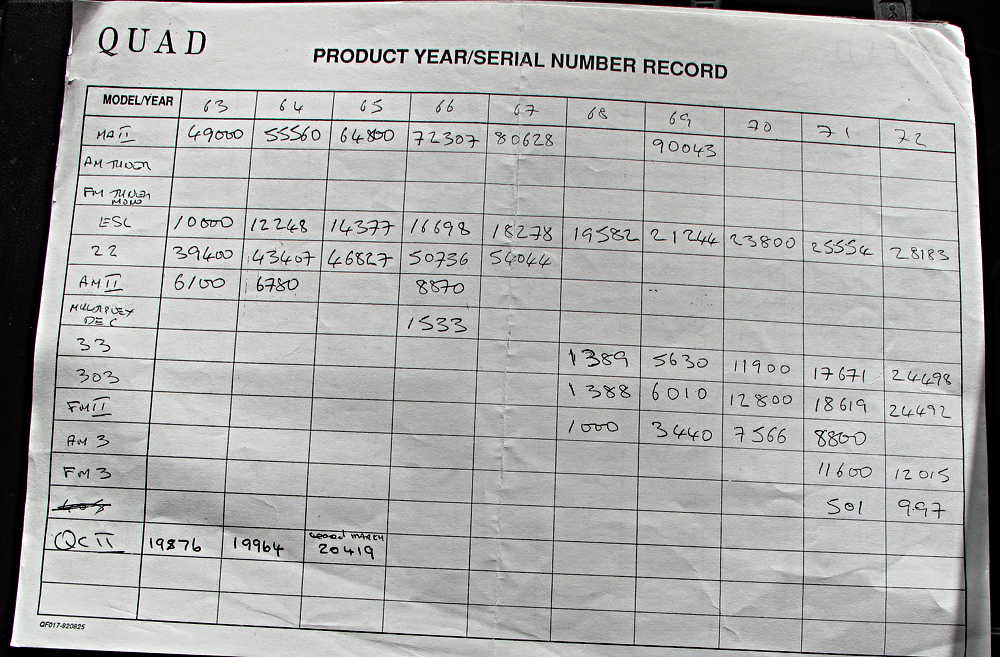 QUAD
PRODUCT YEAR/SERIAL NUMBER RECORD
MODEL/YEAR 63 64 65 66 67 68 69 70 71 72
MA II 49000 55560 64800 72307 80628 90043
AM TUNER
FM TUNER MONO
ESL 10000 12248 14377 16698 18278 19582 21244 23800 25554 28183
22 39400 43407 46827 50736 54044
AM II 6100 6780 8870
MULTIPLEX DEC 1533
33 1389 5630 11900 17671 24498
303 1388 6010 12800 18619 24492
FM II 1000 3440 7566 8800
AM 3 11600 12015
FM 3 501 997
QC II 19876 19964 MARCH 20419
QF017-920825